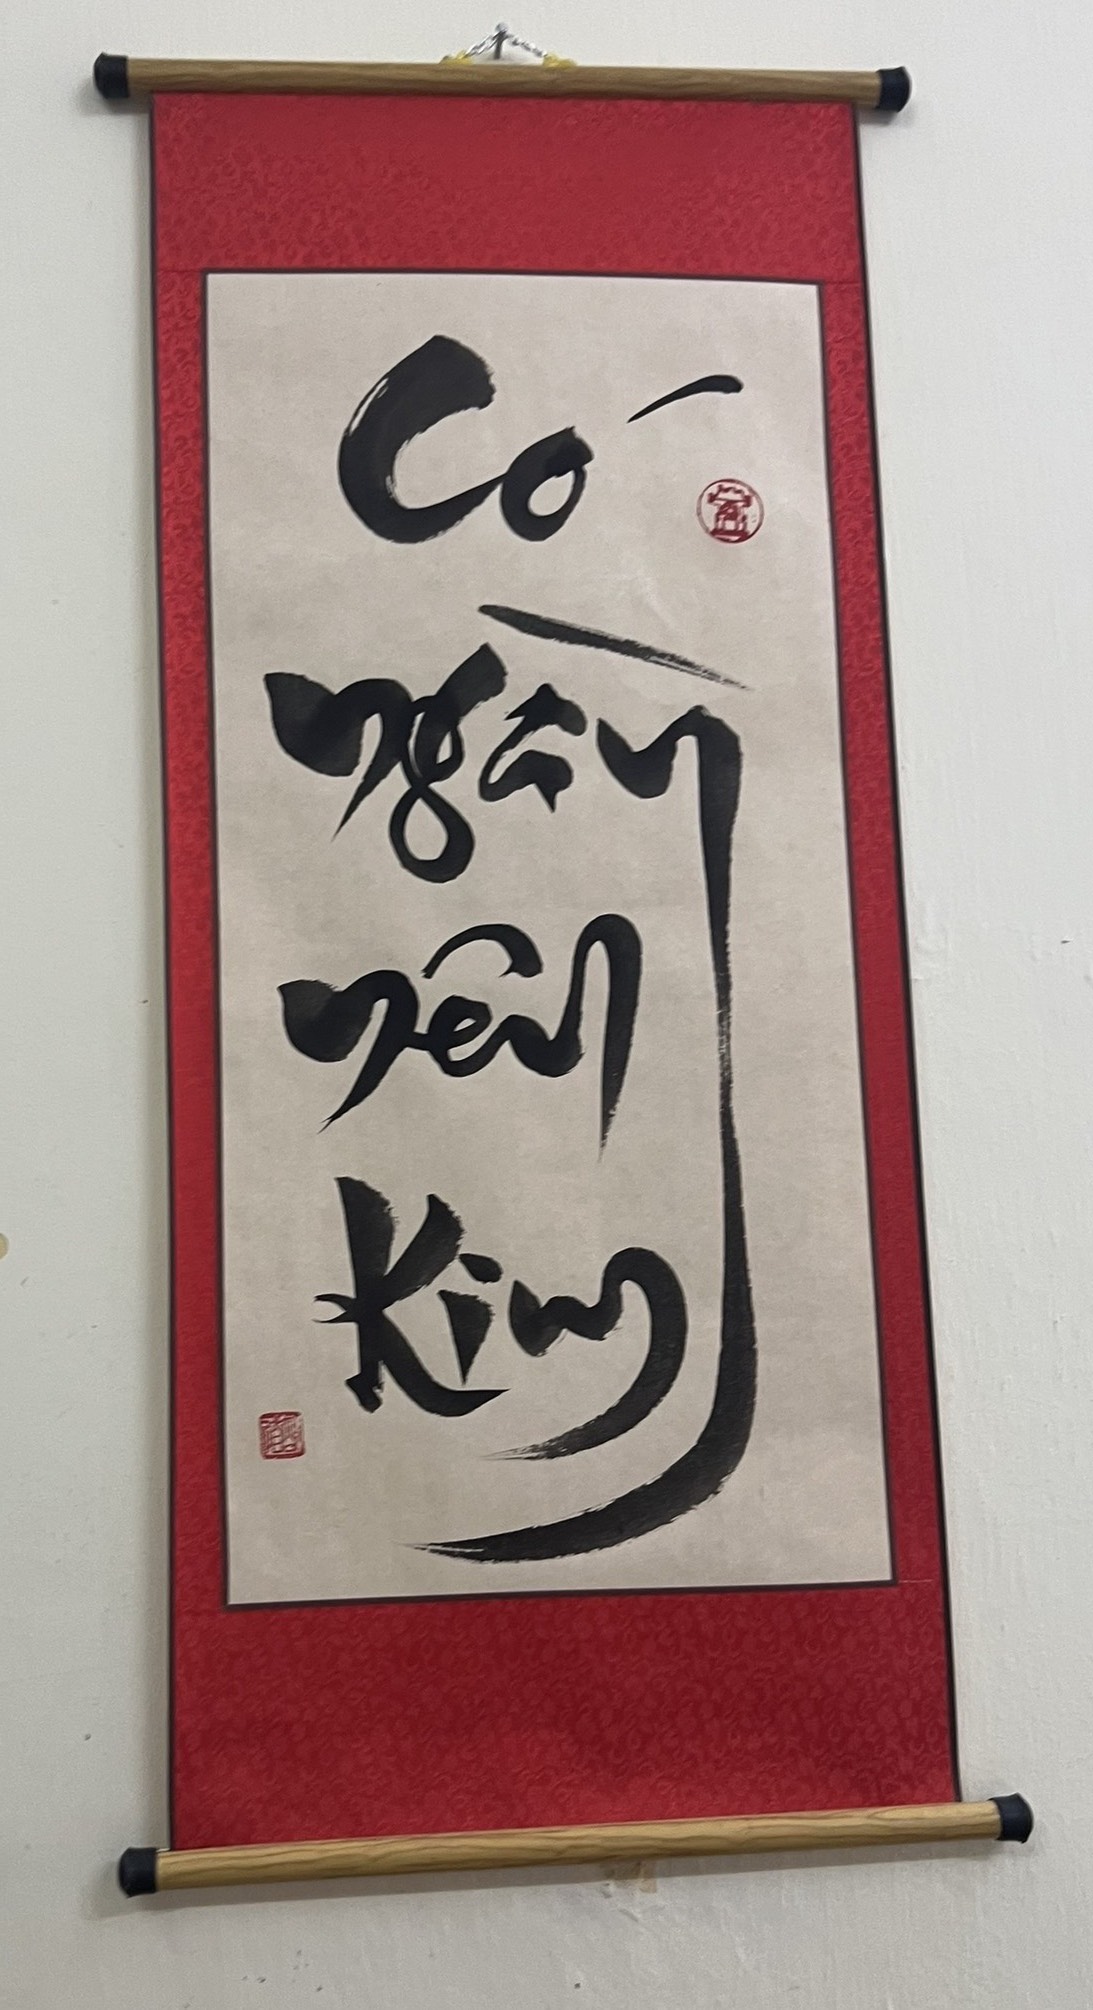 Có
ngàn
nên
Kim